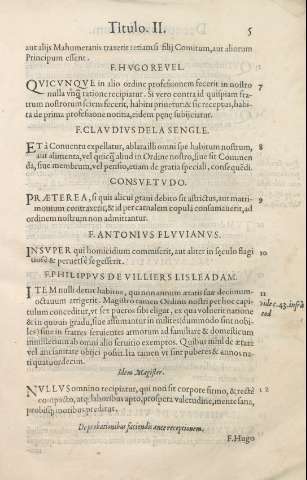 Titulo. II. 5
aut alijs Mahumetanis traxerit tetiamsi filij Comitum, aut aliorum
Principum essent.
F. HVGO REVEL.
QVICVNQVE in alio ordine professionem fecerit in nostro 7
nulla vnq̃ ratione recipiatur. Si vero contra id quispiam fra-
trum nostrorum fecerit, habitu priuetur & sic receptus, habi-
ta de prima professione notitia, eidem pęnę subijciatur.
F. CLAVDIVS DE LA SENGLE.
ET à Conuentu expellatur, ablata illi omni spe habitum nostrum, 8
aut alimenta, vel quicq̃ aliud in Ordine nostro, siue sit Commen
da, siue membrum, vel pensio, etiam de gratia speciali, consequẽdi.
CONSVETVDO.
PRÆTEREA, si quis alicui graui debito sit astrictus, aut matri- 9
monium contraxerit, & id per carnalem copulã consumauerit, ad
ordinem nostrum non admittantur.
F. ANTONIVS FLVVIANVS.
INSVPER qui homicidium commiserit, aut aliter in sęculo flagi 10
tiosè & peruersè se gesserit.
F. PHILIPPVS DE VILLIERS LISLEADAM.
ITEM nulli detur habitus, qui non annum ætatis suæ decimum- 11
octauum attigerit. Magistro tamen Ordinis nostri per hoc capi
tulum conceditur, vt sex pueros sibi eligat, ex qua voluerit natione
& in quouis gradu, siue assumantur in milites (dummodo sint nobi-
les) siue in fratres seruientes armorum ad familiare & domesticum
ministerium ab omni alio seruitio exemptos. Quibus nihil de ætate
vel ancianitate obijci possit. Ita tamen vt sint puberes & annos na-
ti quatuordecim.
vide c. 43. infrà
eod
Idem Magister.
NVLLVS omnino recipiatur, qui non sit corpore firmo, & rectè 12
compacto, atq; laboribus apto, prospera valetudine, mente sana,
probisq; moribus preditus.
De probationibus faciendis ante receptionem.
F. Hugo